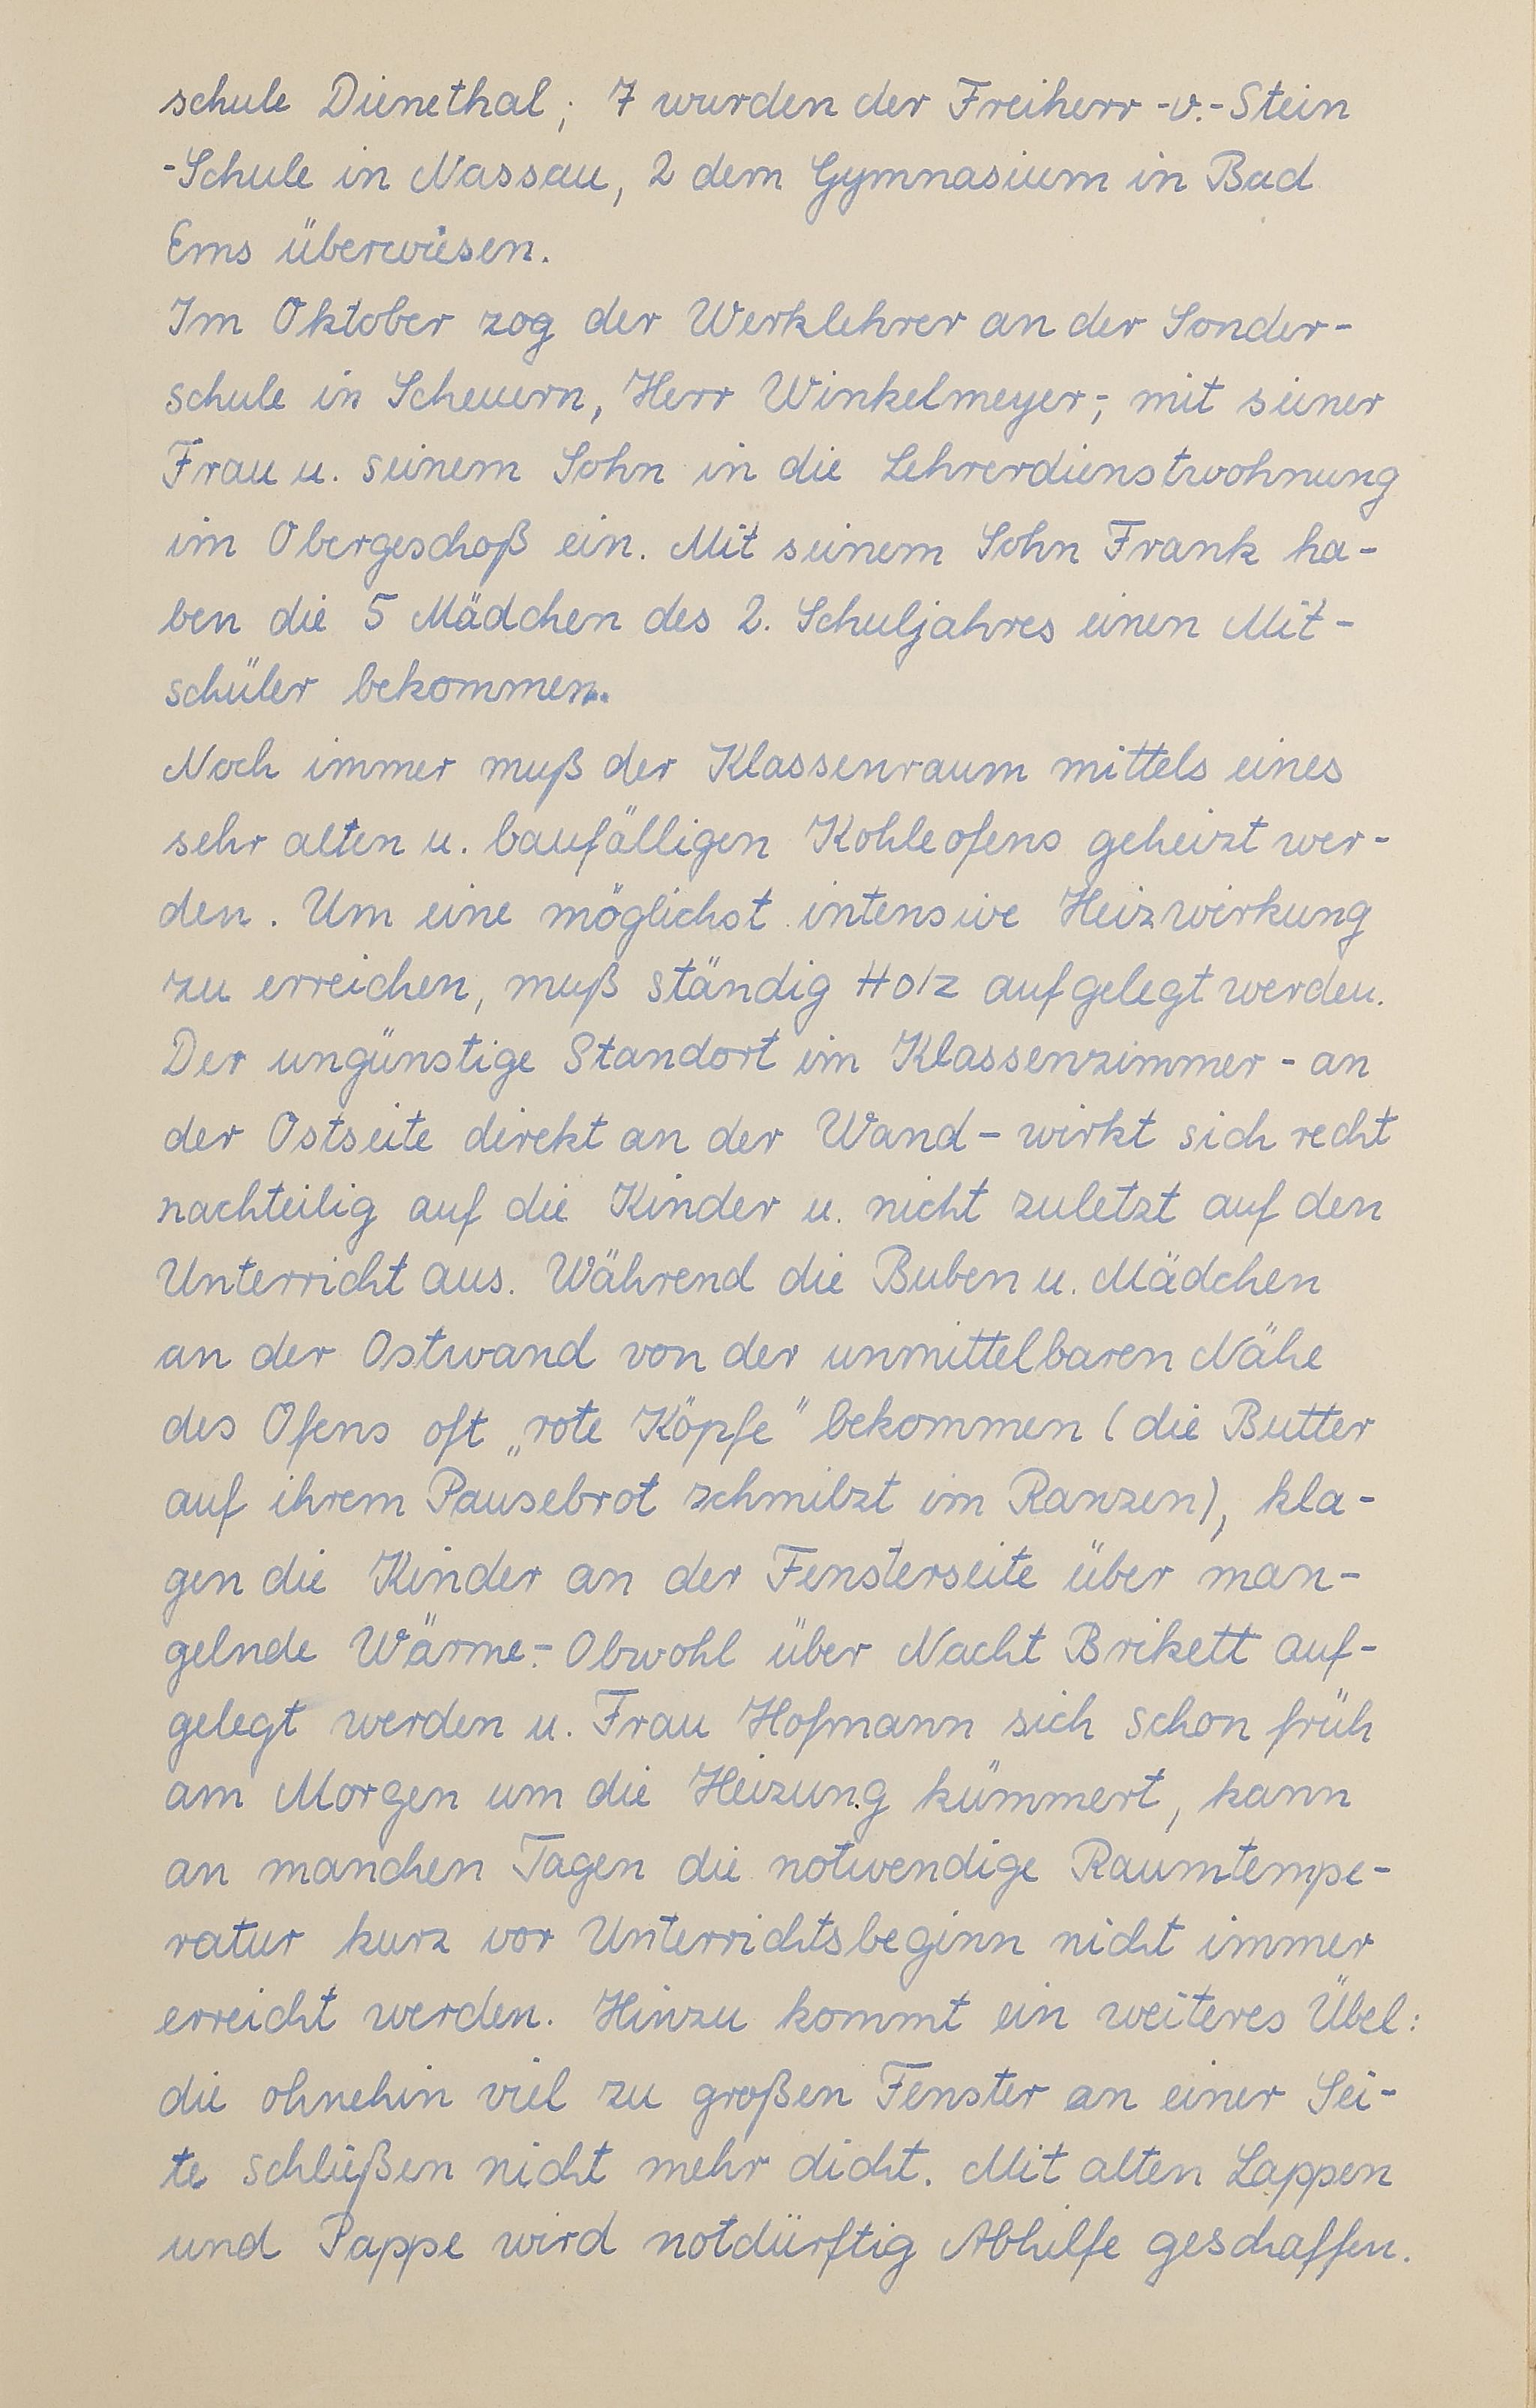 schule Dienethal; 7 wurden der Freiherr-v.-Stein
-Schule in Nassau, 2 dem Gymnasium in Bad
Ems überwiesen.
Im Oktober zog der Werklehrer an der Sonder-
schule in Scheuern, Herr Winkelmeyer, mit seiner
Frau u. seinem Sohn in die Lehrerdienstwohnung
im Obergeschoß ein. Mit seinem Sohn Frank ha-
ben die 5 Mädchen des 2. Schuljahres einen Mit-
schüler bekommen.
Noch immer muß der Klassenraum mittels eines
sehr alten u. baufälligen Kohleofens geheizt wer-
den. Um eine möglichst intensive Heizwirkung
zu erreichen, muß ständig Holz aufgelegt werden.
Der ungünstige Standort im Klassenzimmer - an
der Ostseite direkt an der Wand - wirkt sich recht
nachteilig auf die Kinder u. nicht zuletzt auf den
Unterricht aus. Während die Buben u. Mädchen
an der Ostwand von der unmittelbaren Nähe
des Ofens oft „rote Köpfe" bekommen (die Butter
auf ihrem Pausebrot schmilzt im Ranzen), kla-
gen die Kinder an der Fensterseite über man-
gelnde Wärme.- Obwohl über Nacht Brikett auf-
gelegt werden u. Frau Hofmann sich schon früh
am Morgen um die Heizung kümmert, kann
an manchen Tagen die notwendige Raumtempe-
ratur kurz vor Unterrichtsbeginn nicht immer
erreicht werden. Hinzu kommt ein weiteres Übel:
die ohnehin viel zu großen Fenster an einer Sei-
te schließen nicht mehr dicht. Mit alten Lappen
und Pappe wird notdürftig Abhilfe geschaffen.